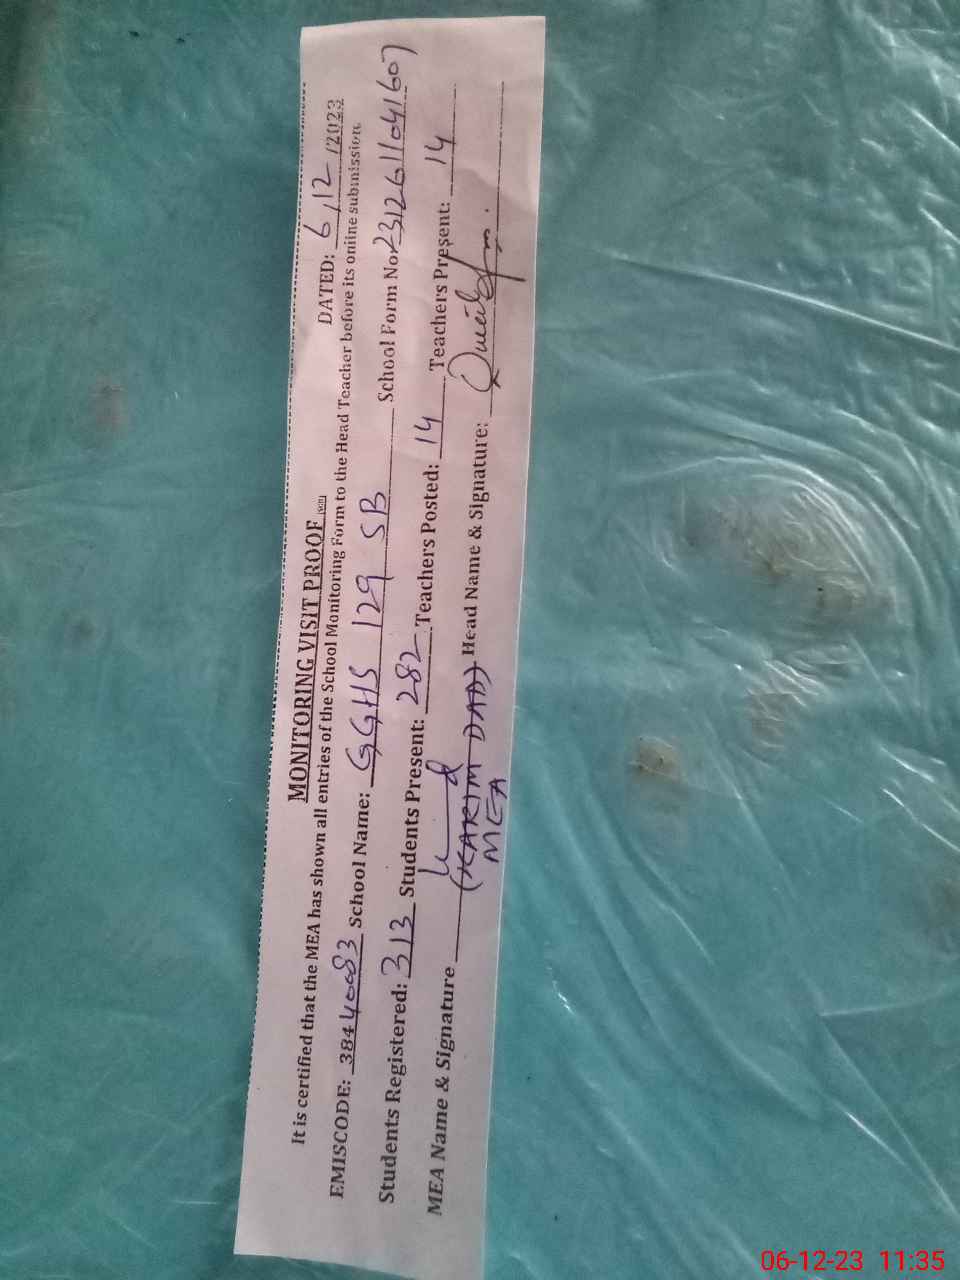 MONITORING VISIT PROOF
DATED: 6/12/2023
It is certified that the MEA has shown all entries of the School Monitoring Form to the Head Teacher before its online submission.
EMISCODE: 38440083 School Name: GGHS 129 SB School Form No: 2312611041607
Students Registered: 313 Students Present: 282 Teachers Posted: 14 Teachers Present: 14
MEA Name & Signature (KARIM DAD) Head Name & Signature:
MEA
06-12-23 11:35